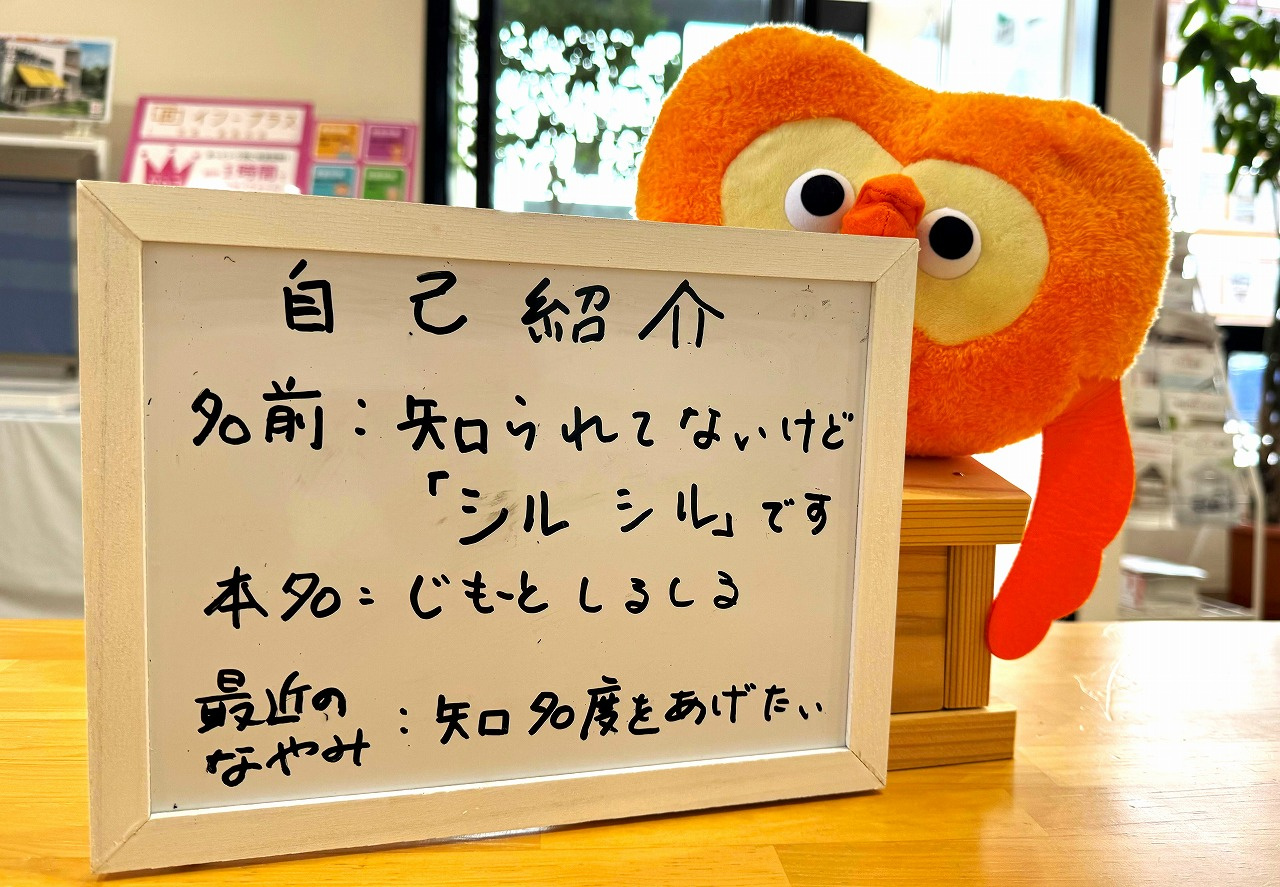 イフ・プラス
自己紹介
名前：知られてないけど
「シルシル」です
本名：じもーとしるしる
最近の
なやみ：知名度をあげたい